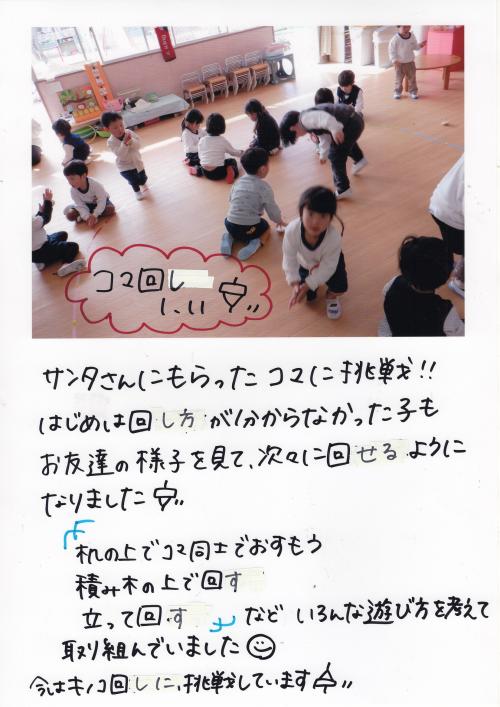 コマ回し
1.11
サンタさんにもらったコマに挑戦!!
はじめは回し方が分からなかった子も
お友達の様子を見て、次々に回せるように
なりました
「机の上でコマ同士でおすもう
積み木の上で回す
立って回す」など いろんな遊び方を考えて
取り組んでいました
今はキノコ回しに、挑戦しています